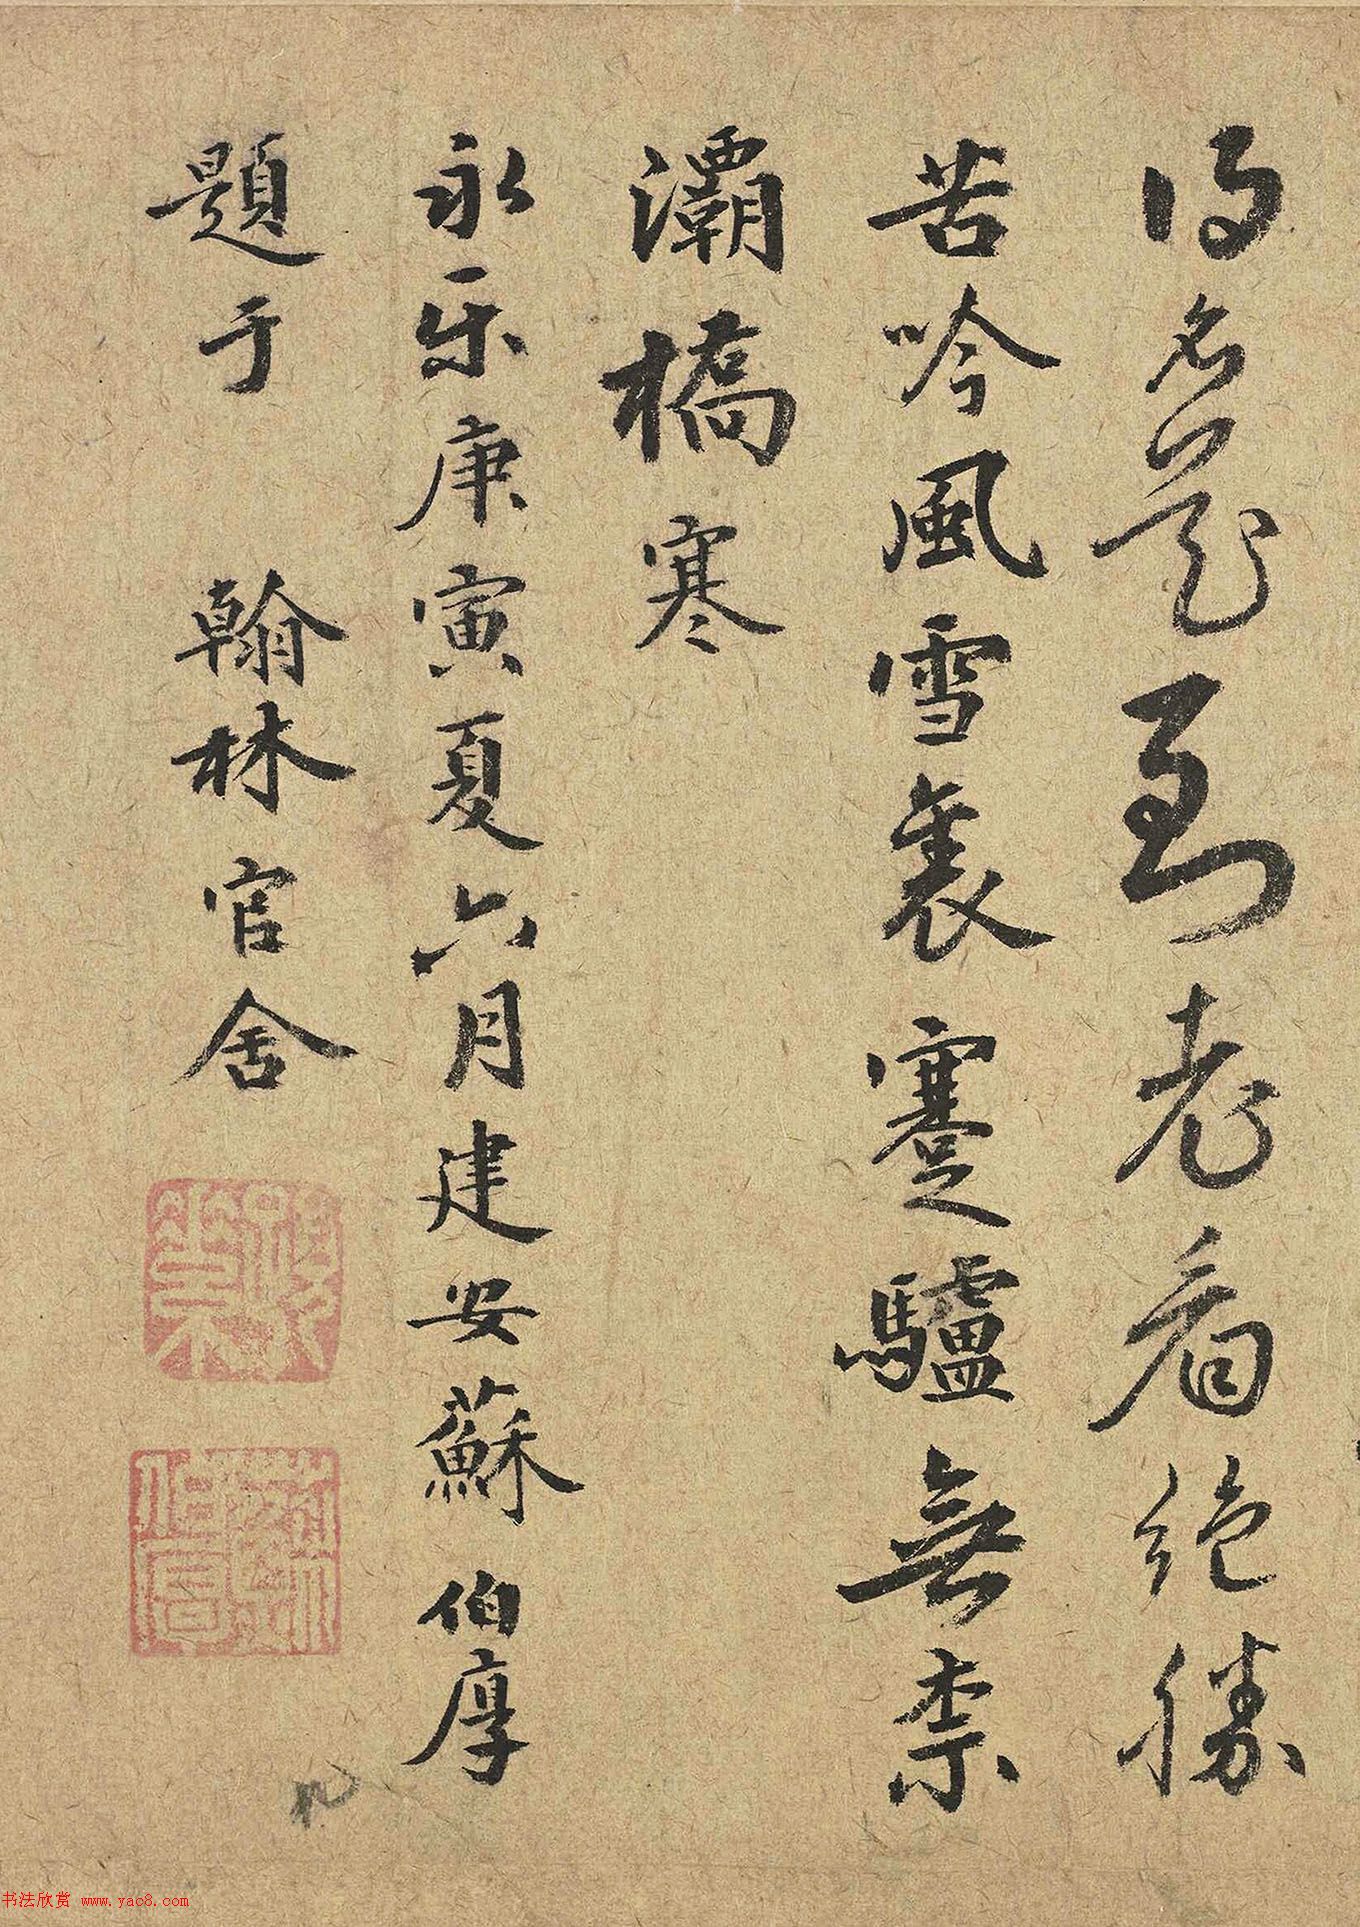 得名花到老看絕勝
苦吟風雪裏蹇驢無柰
灞橋寒
永樂庚寅夏六月建安蘇伯厚
題于 翰林官舍
蘇伯厚
书法欣赏 www.yac8.com